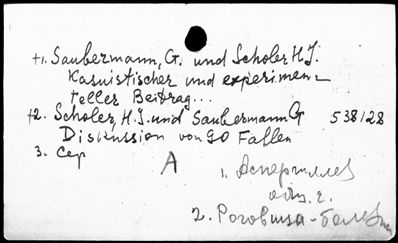 +1. Saubermann, G. und Scholer H.J.
Kasuistischer und experimen-
teller Beitrag...
+2. Scholer, H.J. und Saubermann G 538128
Diskussion von 90 Fallen
3. Сер
A
1. Аспергиллез
2. Роговица-болезни